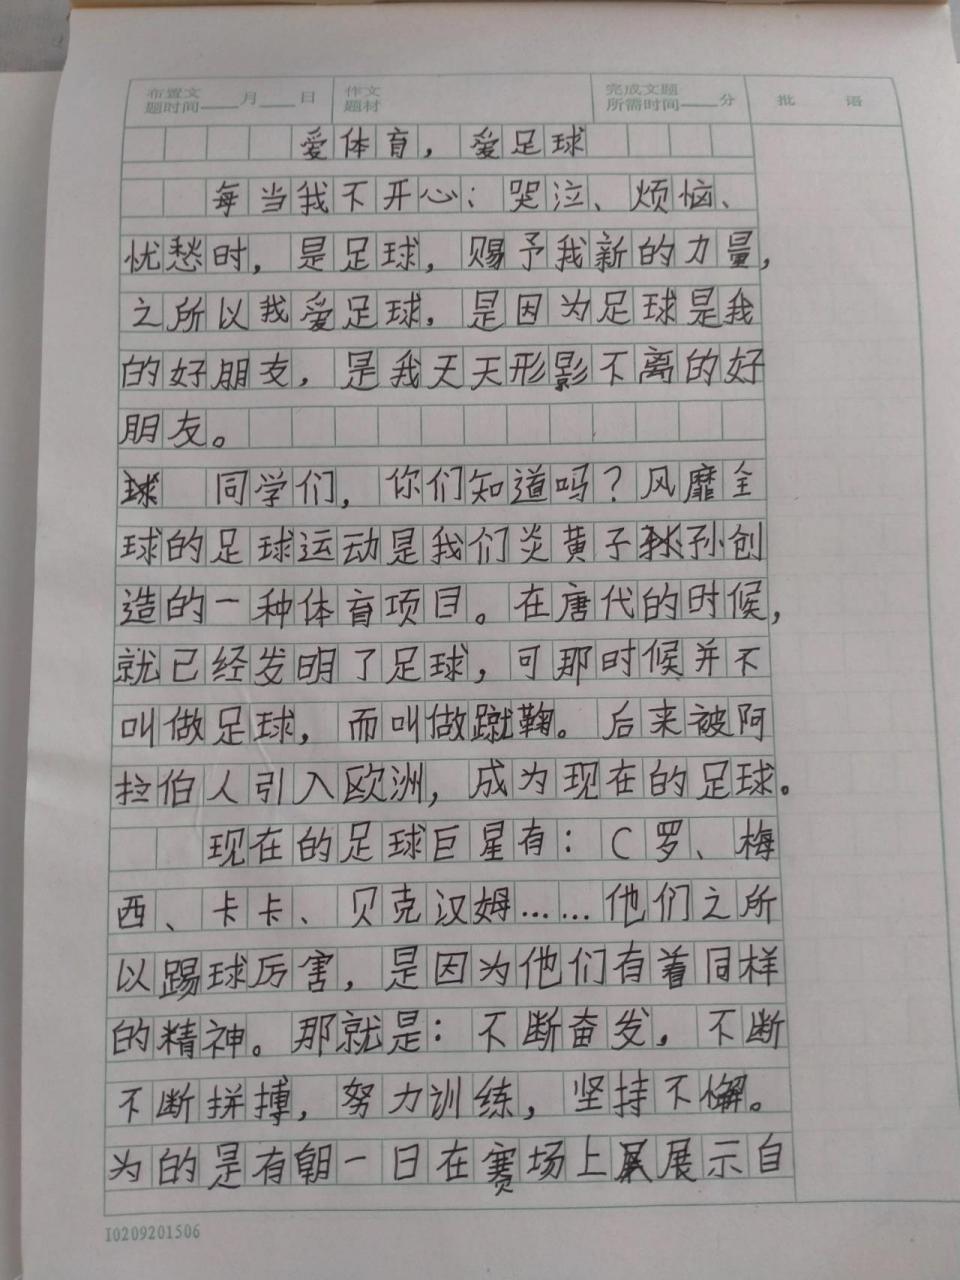 布置文
题时间 月 日
作文
题材
完成文题
所需时间 分
批 语
爱体育，爱足球
每当我不开心：哭泣、烦恼、
忧愁时，是足球，赐予我新的力量，
之所以我爱足球，是因为足球是我
的好朋友，是我天天形影不离的好
朋友。
同学们，你们知道吗？风靡全
球的足球运动是我们炎黄子孙创
造的一种体育项目。在唐代的时候，
就已经发明了足球，可那时候并不
叫做足球，而叫做蹴鞠。后来被阿
拉伯人引入欧洲，成为现在的足球。
现在的足球巨星有：C罗、梅
西、卡卡、贝克汉姆……他们之所
以踢球厉害，是因为他们有着同样
的精神。那就是：不断奋发，不断
不断拼搏，努力训练，坚持不懈。
为的是有朝一日在赛场上展示自
I0209201506